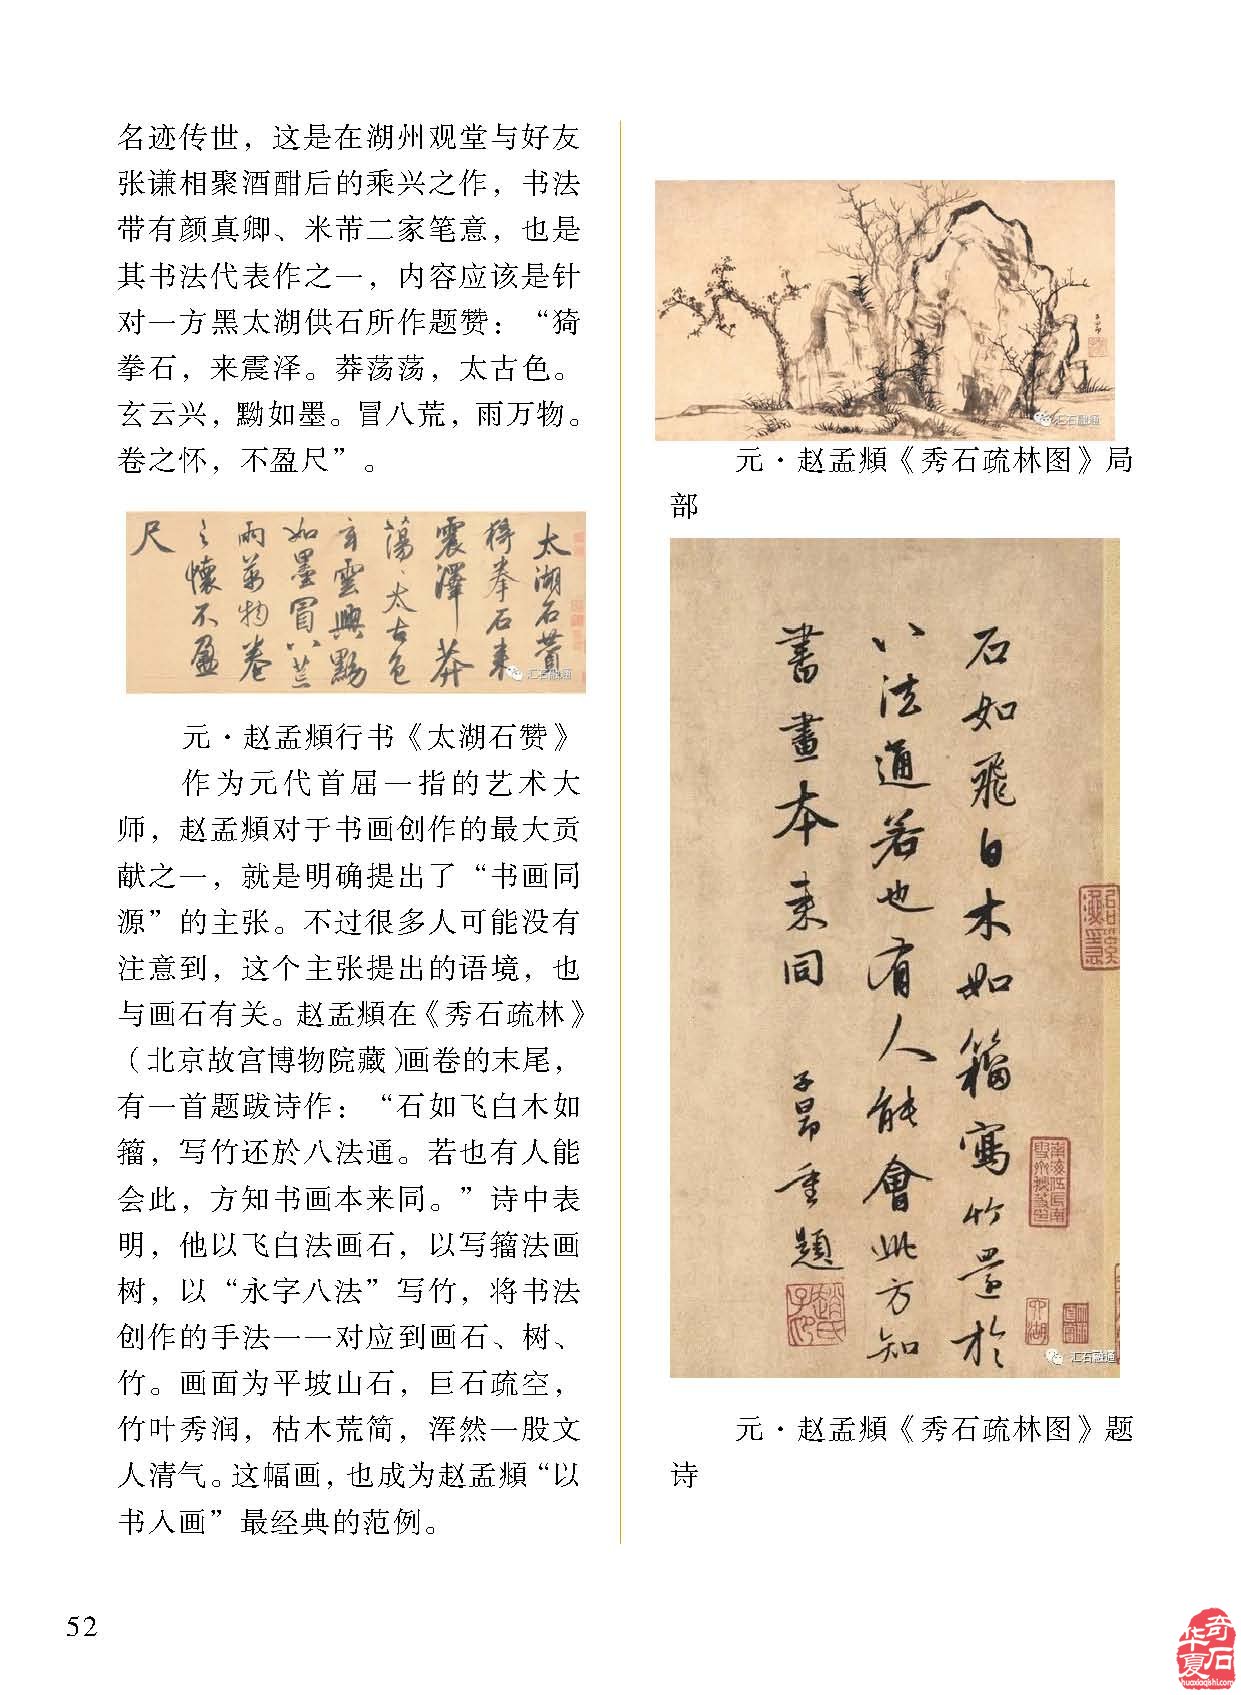 名迹传世，这是在湖州观堂与好友
张谦相聚酒酣后的乘兴之作，书法
带有颜真卿、米芾二家笔意，也是
其书法代表作之一，内容应该是针
对一方黑太湖供石所作题赞：“猗
拳石，来震泽。莽荡荡，太古色。
玄云兴，黝如墨。冒八荒，雨万物。
卷之怀，不盈尺”。
太湖石赞
猗拳石来
震泽莽
荡々太古色
玄雲興黝
如墨冒八荒
雨萬物卷
之懷不盈
尺
汇石融通
元·赵孟頫行书《太湖石赞》
作为元代首屈一指的艺术大
师，赵孟頫对于书画创作的最大贡
献之一，就是明确提出了“书画同
源”的主张。不过很多人可能没有
注意到，这个主张提出的语境，也
与画石有关。赵孟頫在《秀石疏林》
（北京故宫博物院藏)画卷的末尾，
有一首题跋诗作：“石如飞白木如
籀，写竹还於八法通。若也有人能
会此，方知书画本来同。”诗中表
明，他以飞白法画石，以写籀法画
树，以“永字八法”写竹，将书法
创作的手法一一对应到画石、树、
竹。画面为平坡山石，巨石疏空，
竹叶秀润，枯木荒简，浑然一股文
人清气。这幅画，也成为赵孟頫“以
书入画”最经典的范例。
汇石融通
元·赵孟頫《秀石疏林图》局
部
石如飛白木如籀寫竹還於
八法通若也有人能會此方知
書畫本来同
子昂重題
汇石融通
元·赵孟頫《秀石疏林图》题
诗
52
华夏奇石
huaxiaqishi.com